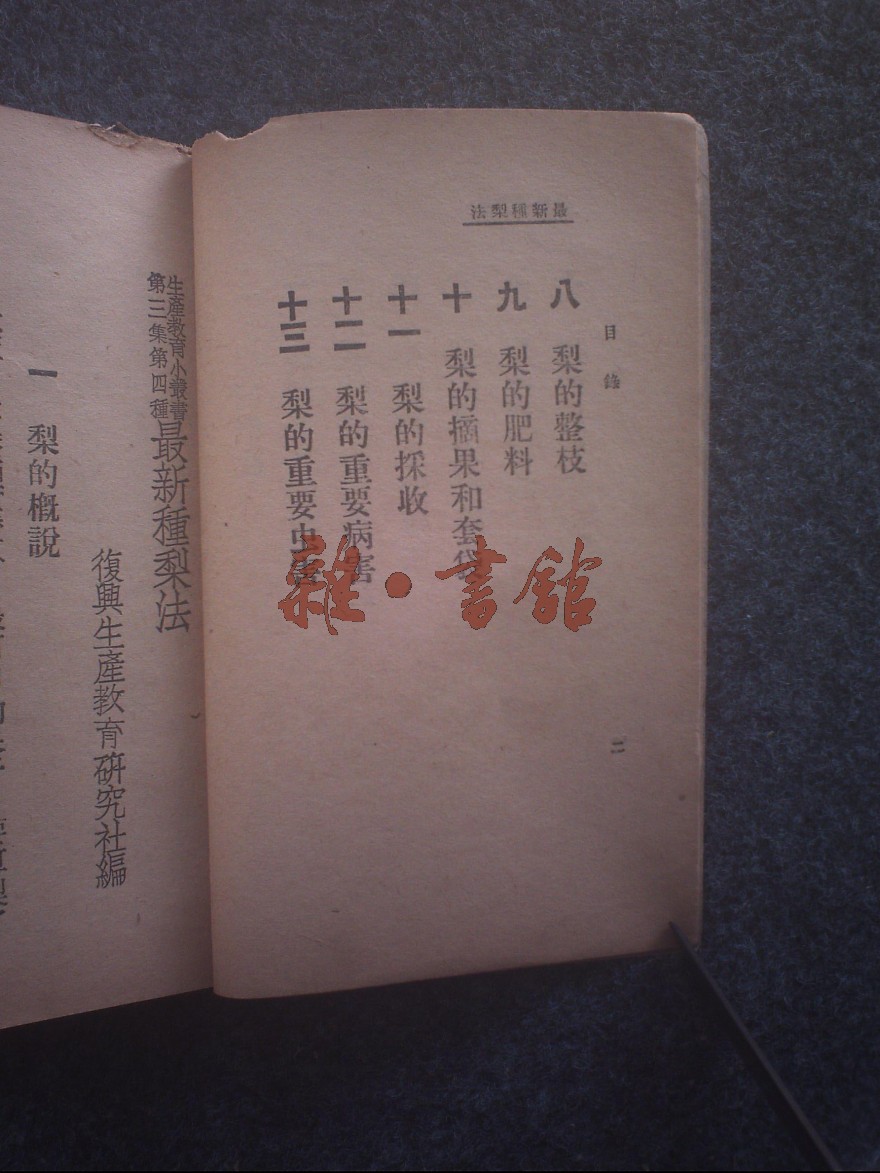 最新種梨法
目錄
八 梨的整枝
九 梨的肥料
十 梨的摘果和套袋
十一 梨的採收
十二 梨的重要病害
十三 梨的重要虫
二
生產教育小叢書
第三集第四種
最新種梨法
復興生產教育研究社編
一 梨的概說
雜·書館